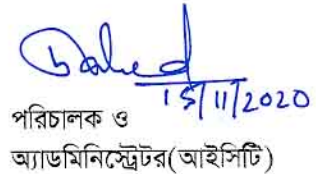 15/11/2020
পরিচালক ও
অ্যাডমিনিস্ট্রেটর(আইসিটি)